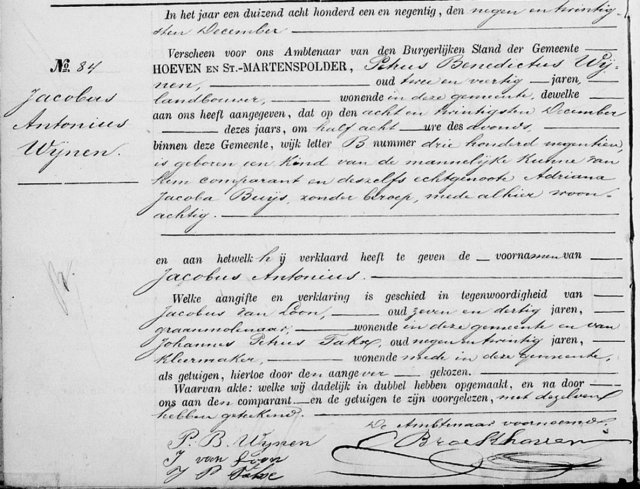 In het jaar een duizend acht honderd een en negentig, den negen en twintig
sten December
Verscheen voor ons Ambtenaar van den Burgerlijken Stand der Gemeente
No. 84
HOEVEN EN ST.-MARTENSPOLDER, Petrus Benedictus Wij
nen, oud twee en veertig jaren,
Jacobus
Antonius
Wijnen.
landbouwer, wonende in deze gemeente, dewelke
aan ons heeft aangegeven, dat op den acht en twintigsten December
dezes jaars, om half acht ure des avonds,
binnen deze Gemeente, wijk letter B nummer drie honderd negentien,
is geboren een kind van de mannelijke kunne van
hem comparant en deszelfs echtgenoote Adriana
Jacoba Buijs, zonder beroep, mede alhier woon-
achtig.
en aan hetwelk hij verklaard heeft te geven de voornamen van
Jacobus Antonius.
Welke aangifte en verklaring is geschied in tegenwoordigheid van
Jacobus van Loon, oud zeven en dertig jaren,
graanmolenaar, wonende in deze gemeente en van
Johannes Petrus Takx, oud negen en twintig jaren,
kleermaker, wonende mede in deze gemeente,
als getuigen, hiertoe door den aangever gekozen.
Waarvan akte: welke wij dadelijk in dubbel hebben opgemaakt, en na door
ons aan den comparant en de getuigen te zijn voorgelezen, met dezelven
hebben geteekend.
De Ambtenaar voornoemd
P. B. Wijnen
J van Loon
J P
Broekhoven